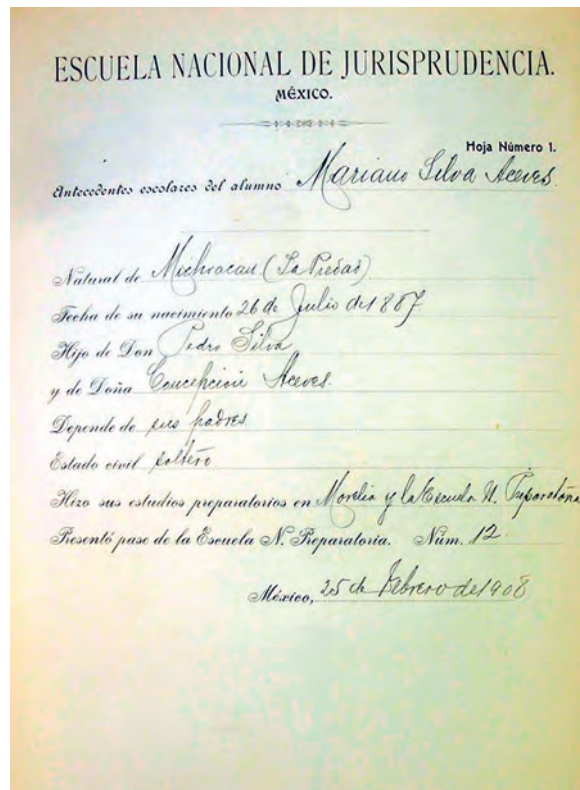 ESCUELA NACIONAL DE JURISPRUDENCIA.
MÉXICO.
Hoja Número 1.
Antecedentes escolares del alumno Mariano Silva Aceves.
Natural de Michoacan (La Piedad)
Fecha de su nacimiento 26 de Julio de 1887
Hijo de Don Pedro Silva
y de Doña Concepcion Aceves.
Depende de sus padres
Estado civil soltero
Hizo sus estudios preparatorios en Morelia y la Escuela N. Preparatoria
Presentó pase de la Escuela N. Preparatoria. Núm. 12.
México, 25 de Febrero de 1908